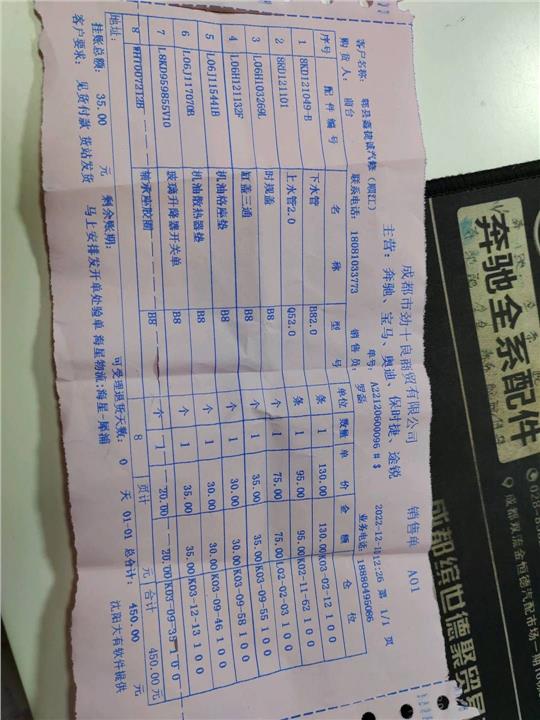 成都市劲十良商贸有限公司 销售单 A01
主营：奔驰、宝马、奥迪、保时捷、途锐
单号：A22120600096 # $ 2022-12- 12:26 第 1/1 页
客户名称：郫县鑫捷诚汽修（顺江）
购货人：前台 联系电话：18081033773 销售员：罗磊 业务电话：18880495086
序号 配件编号 名称 型号 单位 数量 单价 金额 仓位
1 8KD121049-B 下水管 B82.0 条 1 130.00 130.00 K03-02-12 1 0 0
2 8KD121101 上水管2.0 Q52.0 条 1 95.00 95.00 K02-11-62 1 0 0
3 L06H103269L 时规盖 B8 个 1 75.00 75.00 L02-02-03 1 0 0
4 L06H121132F 缸盖三通 B8 个 1 35.00 35.00 K03-09-55 1 0 0
5 L06J115441B 机油格座垫 B8 个 1 30.00 30.00 K03-09-58 1 0 0
6 L06J117070B 机油散热器垫 B8 个 1 30.00 30.00 K03-09-46 1 0 0
7 L8KD959855V10 玻璃升降器开关单 B8 个 1 35.00 35.00 K03-12-13 1 0 0
8 WHT007212B 轴承座胶圈 B8 个 1 20.00 20.00 K03-09-3 1 0 0
8 页计 元 合计 450.00 元
地址：
挂账总额：35.00 元 剩余账期： 可受理退货天数：0 天 01-01 总合计：450.00 元
客户要求：见货付款 货站发货 马上安排发开单处验单 海星物流:海星-犀浦 沈阳大有软件提供
奔驰全系配件
028-8
成都双流金恒德汽配市场一期16栋
成都缤世德聚贸易